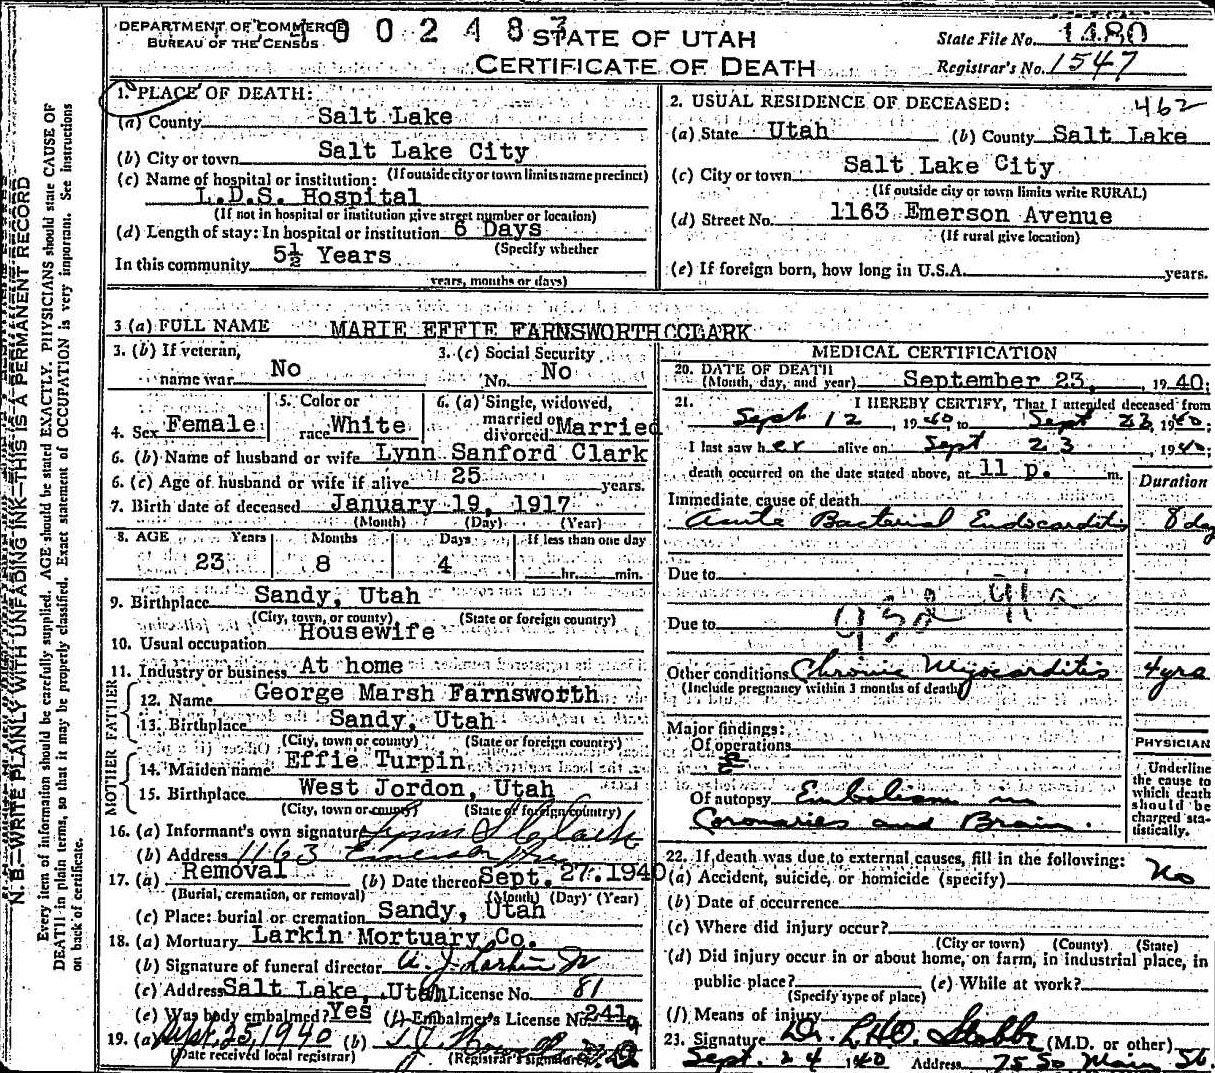 DEPARTMENT OF COMMERCE
BUREAU OF THE CENSUS
STATE OF UTAH
CERTIFICATE OF DEATH
State File No. 1480
Registrar's No. 1547
1. PLACE OF DEATH:
(a) County Salt Lake
(b) City or town Salt Lake City
(If outside city or town limits name precinct)
(c) Name of hospital or institution:
L.D.S. Hospital
(If not in hospital or institution give street number or location)
(d) Length of stay: In hospital or institution 6 Days
(Specify whether
In this community 5½ Years
years, months or days)
2. USUAL RESIDENCE OF DECEASED: 462
(a) State Utah (b) County Salt Lake
(c) City or town Salt Lake City
(If outside city or town limits write RURAL)
(d) Street No. 1163 Emerson Avenue
(If rural give location)
(e) If foreign born, how long in U.S.A. years.
3 (a) FULL NAME MARIE EFFIE FARNSWORTH CCLARK
3. (b) If veteran, name war No
3. (c) Social Security No. No
4. Sex Female
5. Color or race White
6. (a) Single, widowed, married or divorced Married
6. (b) Name of husband or wife Lynn Sanford Clark
6. (c) Age of husband or wife if alive 25 years.
7. Birth date of deceased January 19, 1917
(Month) (Day) (Year)
8. AGE Years Months Days If less than one day
23 8 4 hr. min.
9. Birthplace Sandy, Utah
(City, town, or county) (State or foreign country)
10. Usual occupation Housewife
11. Industry or business At home
FATHER
12. Name George Marsh Farnsworth
13. Birthplace Sandy, Utah
(City, town or county) (State or foreign country)
MOTHER
14. Maiden name Effie Turpin
15. Birthplace West Jordon, Utah
(City, town or county) (State or foreign country)
16. (a) Informant's own signature Lynn S Clark
(b) Address 1163 Emerson Ave
17. (a) Removal (b) Date thereof Sept. 27. 1940
(Burial, cremation, or removal) (Month) (Day) (Year)
(c) Place: burial or cremation Sandy, Utah
18. (a) Mortuary Larkin Mortuary Co.
(b) Signature of funeral director A. J. Larkin Jr
(c) Address Salt Lake, Utah License No. 81
(e) Was body embalmed? Yes (f) Embalmer's License No. 241
19. (a) Sept. 25, 1940 (b)
(Date received local registrar) (Registrar's signature)
MEDICAL CERTIFICATION
20. DATE OF DEATH
(Month, day, and year) September 23, 1940;
21. I HEREBY CERTIFY, That I attended deceased from
Sept 12, 1940, to Sept 23, 1940;
I last saw her alive on Sept 23 1940;
death occurred on the date stated above, at 11 p. m.
Duration
Immediate cause of death
Acute Bacterial Endocarditis 8 day
Due to
Due to
Other conditions Chronic Myocarditis 4 yrs
(Include pregnancy within 3 months of death)
Major findings:
Of operations
Of autopsy Embolism in
Coronaries and Brain.
PHYSICIAN
Underline the cause to which death should be charged statistically.
22. If death was due to external causes, fill in the following:
(a) Accident, suicide, or homicide (specify) No
(b) Date of occurrence
(c) Where did injury occur?
(City or town) (County) (State)
(d) Did injury occur in or about home, on farm, in industrial place, in
public place? (e) While at work?
(Specify type of place)
(f) Means of injury
23. Signature Dr. (M.D. or other)
Sept. 24 1940 Address 75 So Main St.
N. B.—WRITE PLAINLY WITH UNFADING INK—THIS IS A PERMANENT RECORD
Every item of information should be carefully supplied. AGE should be stated EXACTLY. PHYSICIANS should state CAUSE OF
DEATH in plain terms, so that it may be properly classified. Exact statement of OCCUPATION is very important. See instructions
on back of certificate.